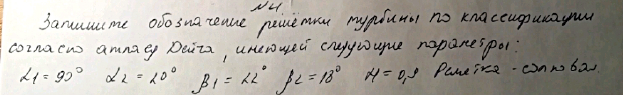 №4
Запишите обозначение решётки турбины по классификации
согласно атласу Дейча, имеющей следующие параметры:
α1=90° α2=20° β1=22° β2=18° M=0,9 Решетка - сопловая